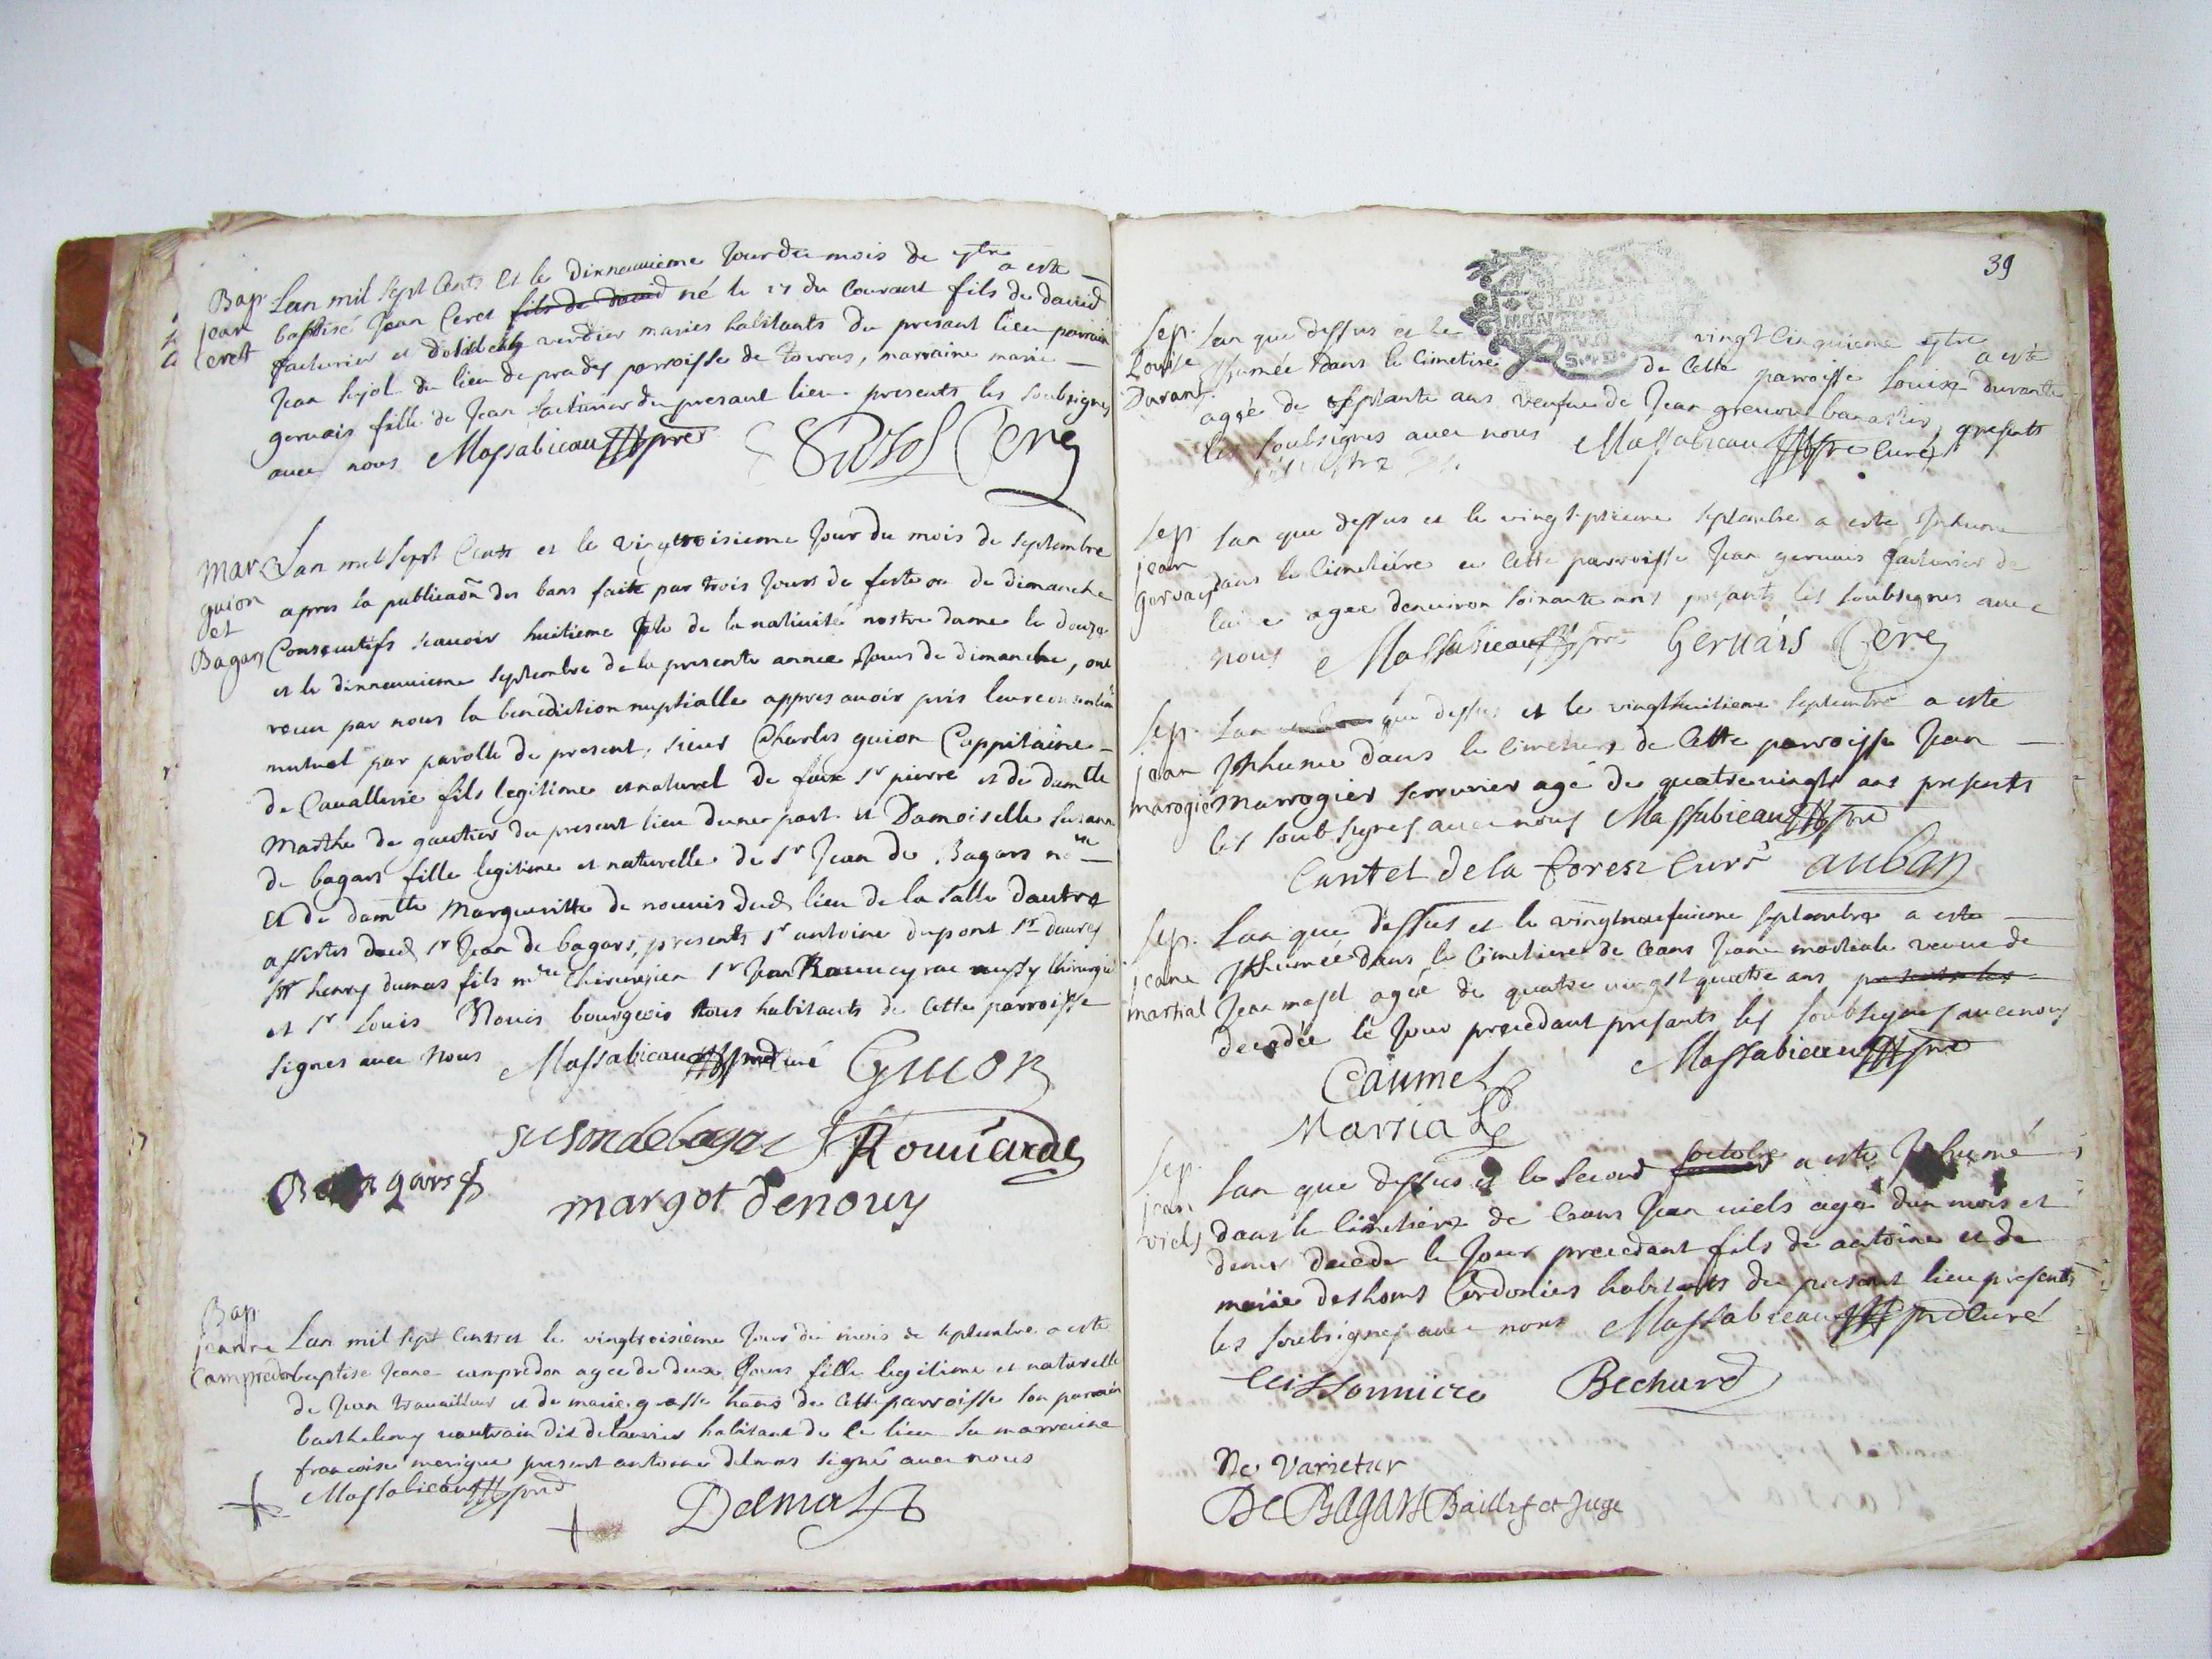 Bap. Lan mil sept Cents et le dixneuvieme Jour du mois de 7bre a este
jean baptisé Jean Ceret fils de david né le 17 du Courant fils de david
Ceret facturier et verdier maries habitants du presant lieu parrain
Jean pujol du lieu de prades parroisse de tornas, marraine marie
gervais fille de Jean facturier du presant lieu presents les soubsignes
avec nous Massabieau pre Pujol Cere
Mar Lan mil sept Cents et le vingttroisieme Jour du mois de septembre
guion apres la publicaõn des bans faite par trois Jours de feste ou de dimanche
et Consecutifs scavoir huitieme feste de la nativité nostre dame le douze
Bagars et le dixneuvieme septembre de la presente annee Jours de dimanche, ont
receu par nous la benediction nuptialle appres avoir pris leur consentem
mutuel par parolle de present, sieur Charles guion Cappitaine
de Cavallerie fils legitime et naturel de feux sr pierre et de damlle
Marthe de gautier du present lieu dune part. et Damoiselle susanne
de bagars fille legitime et naturelle de sr Jean de Bagars nre
et de damlle Margueritte de nouvis dud lieu de la Salle dautre
assistes dud sr Jean de bagars, presents sr antoine dupont sr
sr henry dumas fils me Chirurgien sr Jean Chirurgien
et sr Louis Nouis bourgeois tous habitants de cette parroisse
signes avec nous Massabieau pre curé Guion
suson de bagars Rouviarde
Bagars
margot denouy
Bap.
jeanne Lan mil sept Cents et le vingttroisieme Jour du mois de septembre a este
Campredon baptise Jeane campredon agee de deux Jours fille legitime et naturelle
de Jean travailleur et de marie grasse hans de cette parroisse son parrain
barthelemy dit habitant de ce lieu sa marraine
francoise present antoine delmas signé avec nous
Massabieau pre
Delmas
39
Sep. Lan que dessus et le vingt Cinquieme 7bre a esté
Louise Jnhumée dans le Cimetire de Cette parroisse Louise durante
Durant agée de septante ans veufve de Jean banastier, presents
les soubsignes avec nous Massabieau pre Curé
Sep. Lan que dessus et le vingtseptieme septembre a este Jnhume
jean dans le Cimetiere de Cette parroisse Jean gervais facturier de
Gervais laine agee denviron soixante ans presants les soubsignes avec
nous Massabieau pre Gervais Cere
Sep. Lan que dessus et le vingthuitieme septembre a este
jean Jnhume dans le cimetiere de Cette parroisse Jean
marogier Marrogier serrurier agé de quatre vingts ans presents
les soubsignes avec nous Massabieau pre
Cantel de la forest Curé auban
Sep. Lan que dessus et le vingtneufvieme septembre a este
jeane Jnhumée dans le Cimetiere de Ceans Jeane martiale veuve de
martial Jean agée de quatre vingst quatre ans presents les
decedée le Jour precedant presants les soubsignes avec nous
Caumel Massabieau pre
Marsial
Sep. Lan que dessus et le second octobre a este Jnhumé
jean dans le Cimetiere de Ceans Jean viels agé dun mois et
viels demy decede le Jour precedant fils de antoine et de
marie deshons Cordonier habitants du presant lieu presents
les soubsignes avec nous Massabieau pre Curé
teissonniere Bechard
Ne Varietur
De BAGARS Baillif et Juge